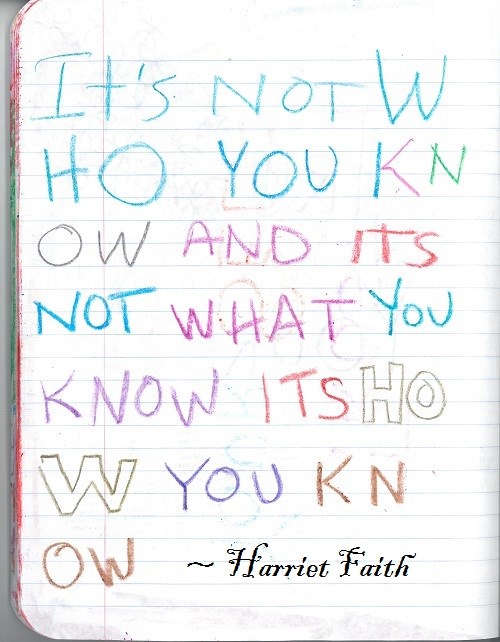 It's NOT W
HO YOU KN
OW AND ITS
NOT WHAT YOU
KNOW ITS HO
W YOU KN
OW ~ Harriet Faith